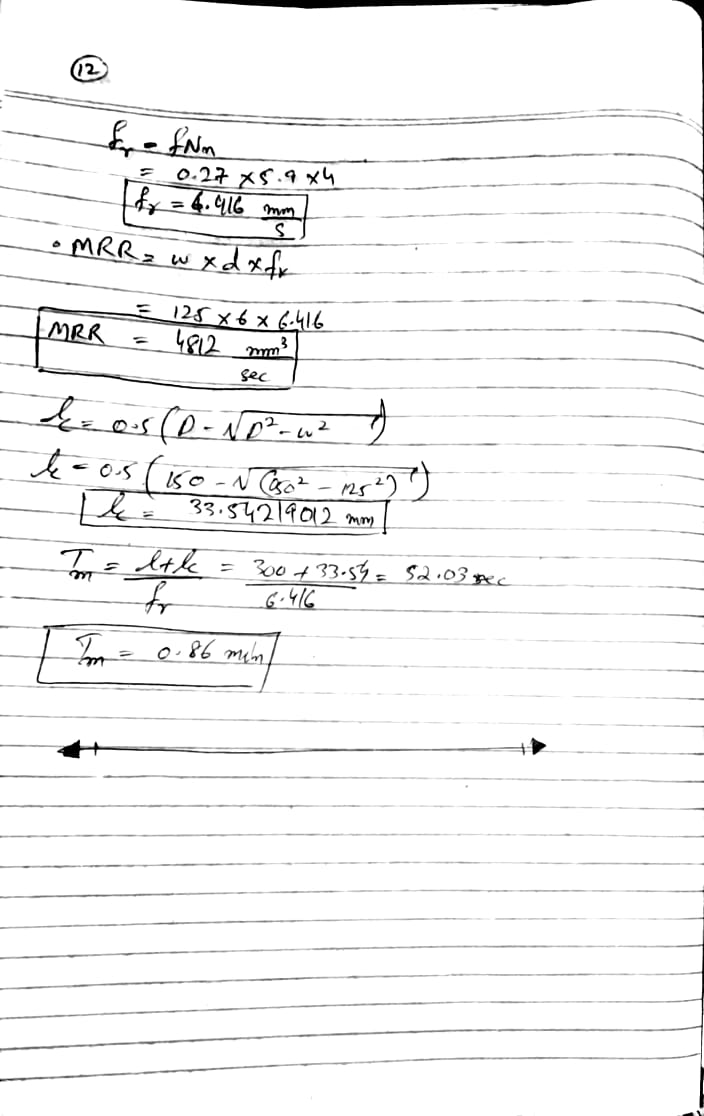 12
fr = fNn
= 0.27 × 5.9 × 4
fr = 6.416 mm/s
• MRR = w × d × fr
= 125 × 6 × 6.416
MRR = 4812 mm³/sec
lc = 0.5 (D - √D² - w²)
lc = 0.5 (150 - √(150² - 125²))
lc = 33.54219012 mm
Tm = l + lc / fr = 300 + 33.54 / 6.416 = 52.03 sec
Tm = 0.86 min